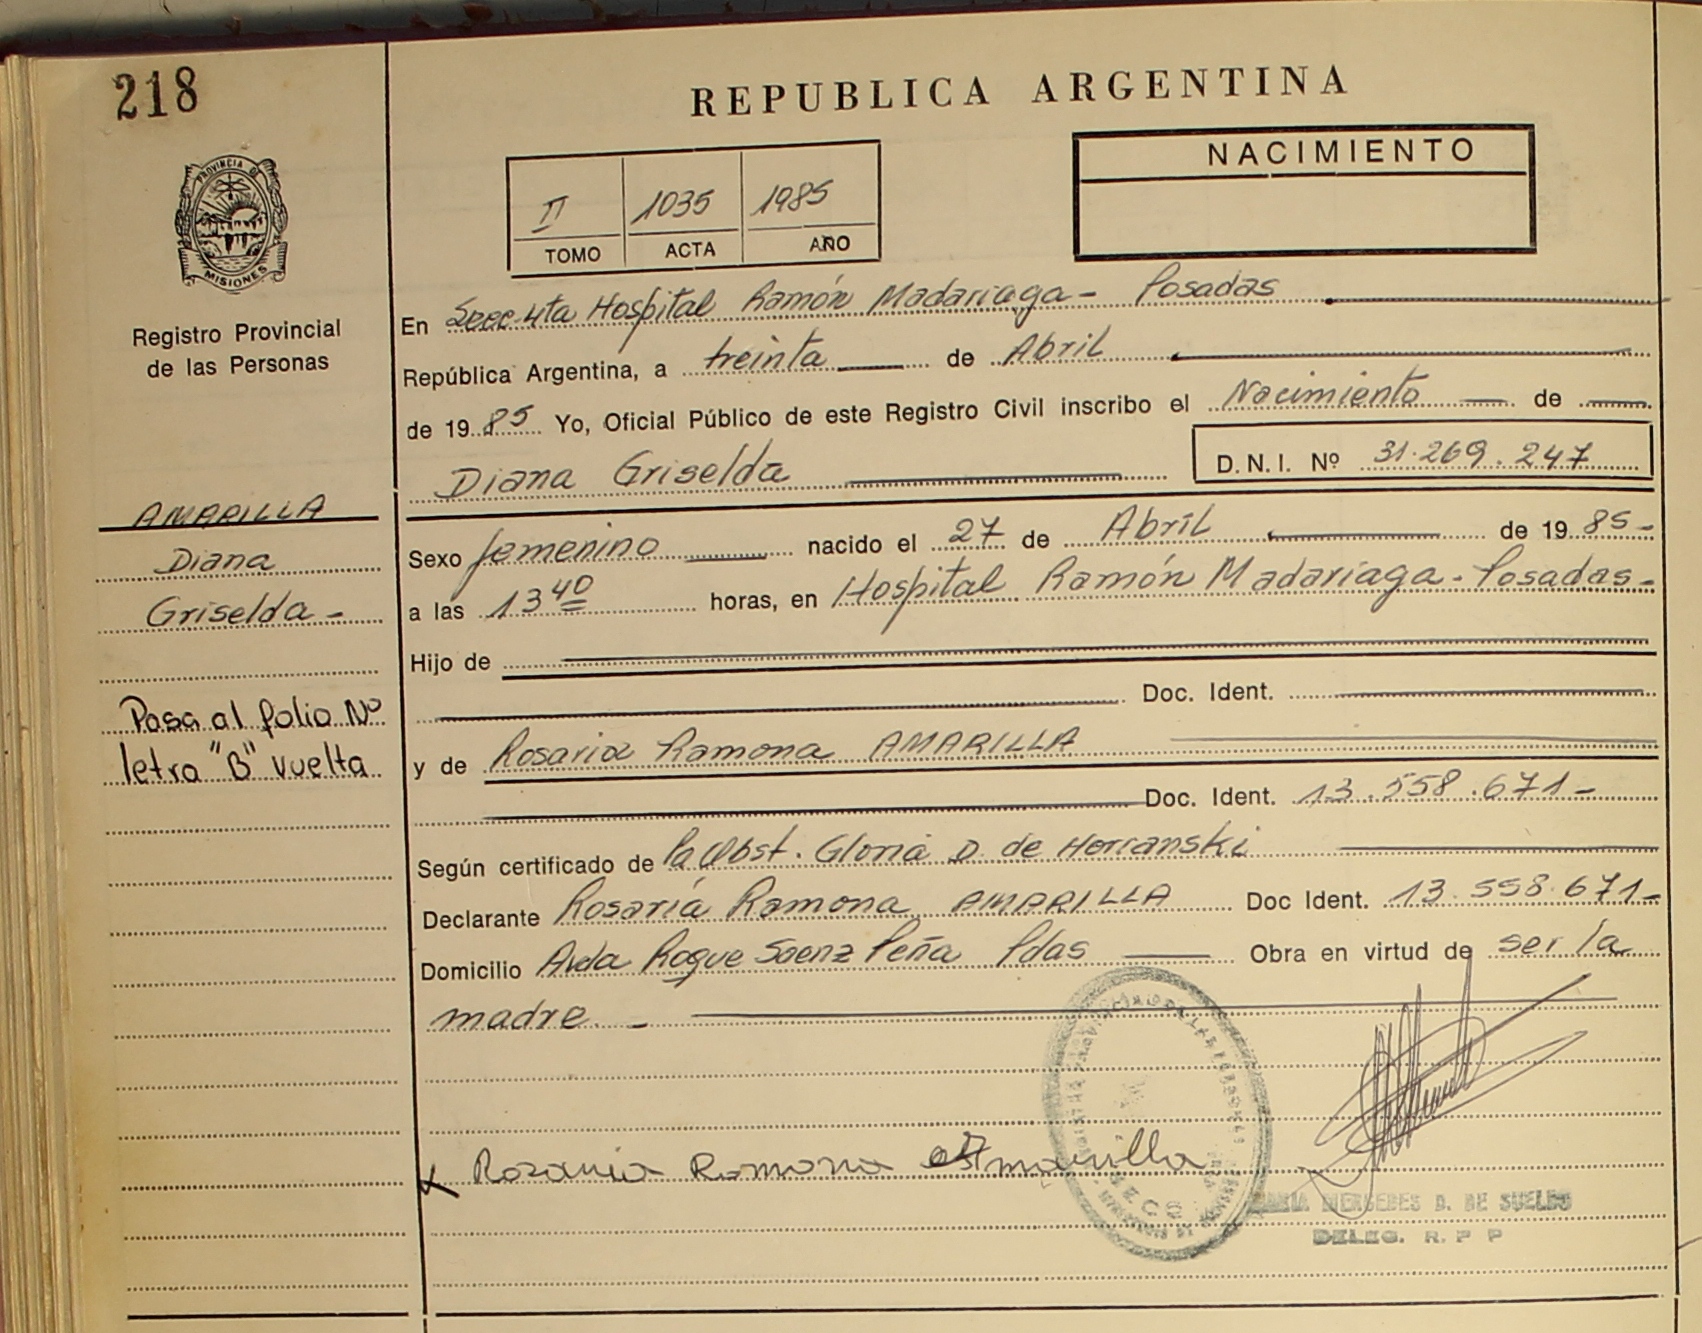 218
REPUBLICA ARGENTINA
PROVINCIA DE
MISIONES
Registro Provincial
de las Personas
II 1035 1985
TOMO ACTA AÑO
NACIMIENTO
En Secc. 4ta Hospital Ramón Madariaga - Posadas
República Argentina, a treinta de Abril
de 1985 Yo, Oficial Público de este Registro Civil inscribo el Nacimiento de
Diana Griselda D.N.I. Nº 31.269.247
AMARILLA
Diana
Griselda -
Pasa al folio Nº
letra "B" vuelta
Sexo femenino nacido el 27 de Abril de 1985-
a las 13 40 horas, en Hospital Ramón Madariaga - Posadas -
Hijo de
Doc. Ident.
y de Rosaria Ramona AMARILLA
Doc. Ident. 13.558.671-
Según certificado de la Obst. Gloria D. de Horranski
Declarante Rosaria Ramona AMARILLA Doc Ident. 13.558.671-
Domicilio Avda Roque Saenz Peña Pdas Obra en virtud de ser la
madre. -
x Rosaria Ramona Amarilla
MARIA MERCEDES D. DE SUELDO
DELEG. R. P P